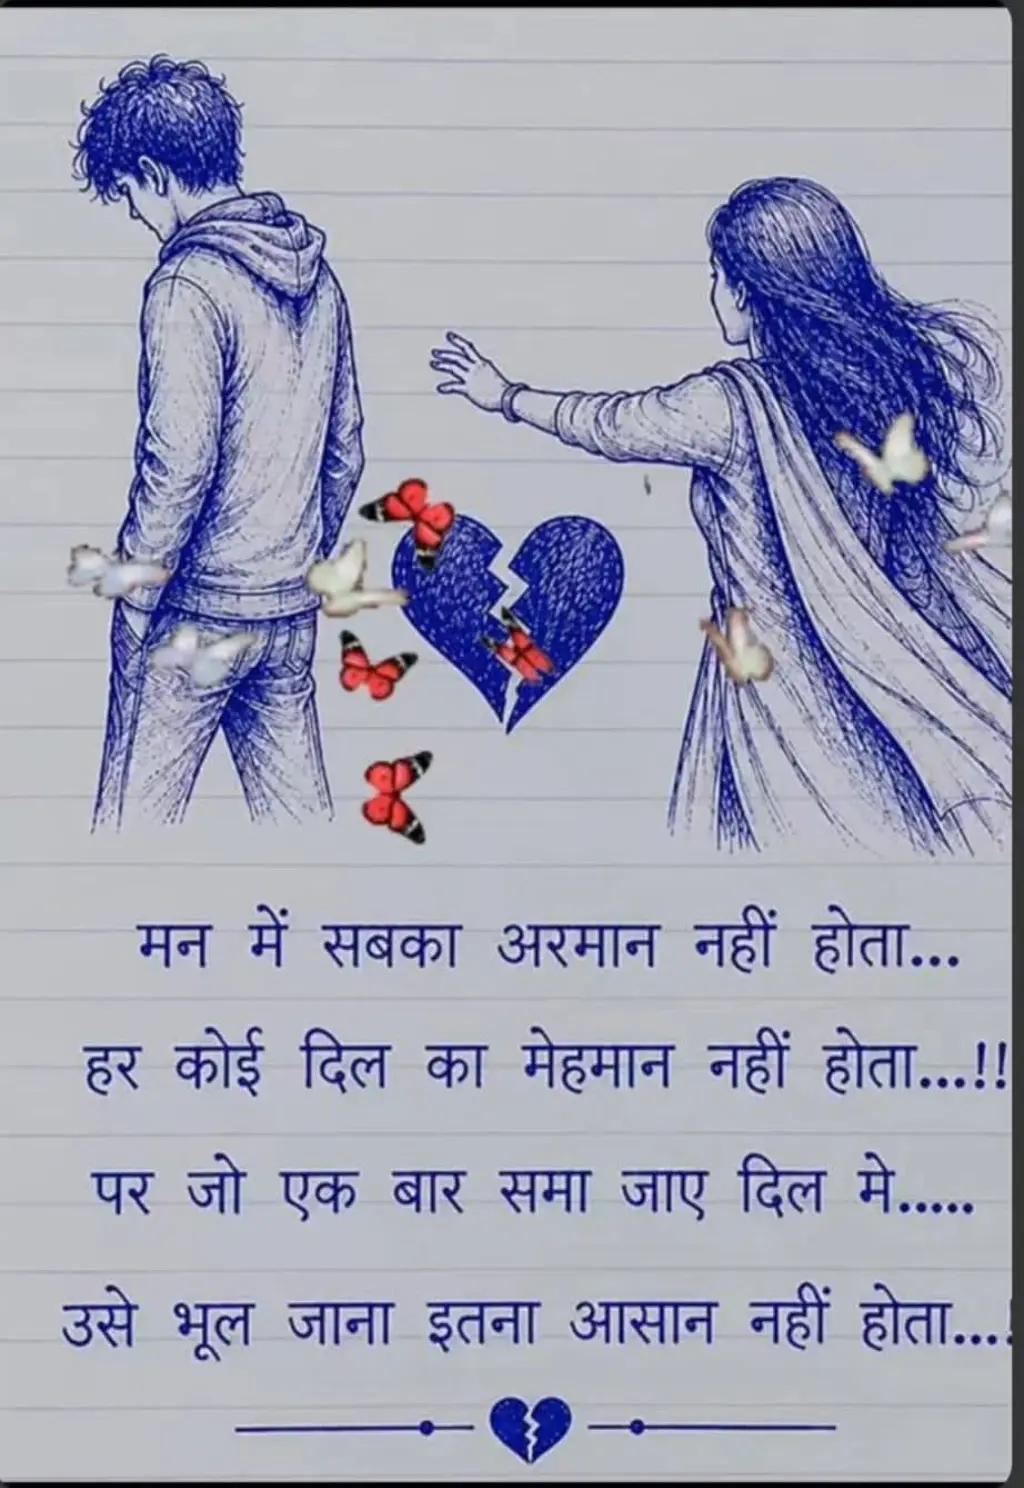 मन में सबका अरमान नहीं होता...
हर कोई दिल का मेहमान नहीं होता...!!
पर जो एक बार समा जाए दिल मे.....
उसे भूल जाना इतना आसान नहीं होता...!